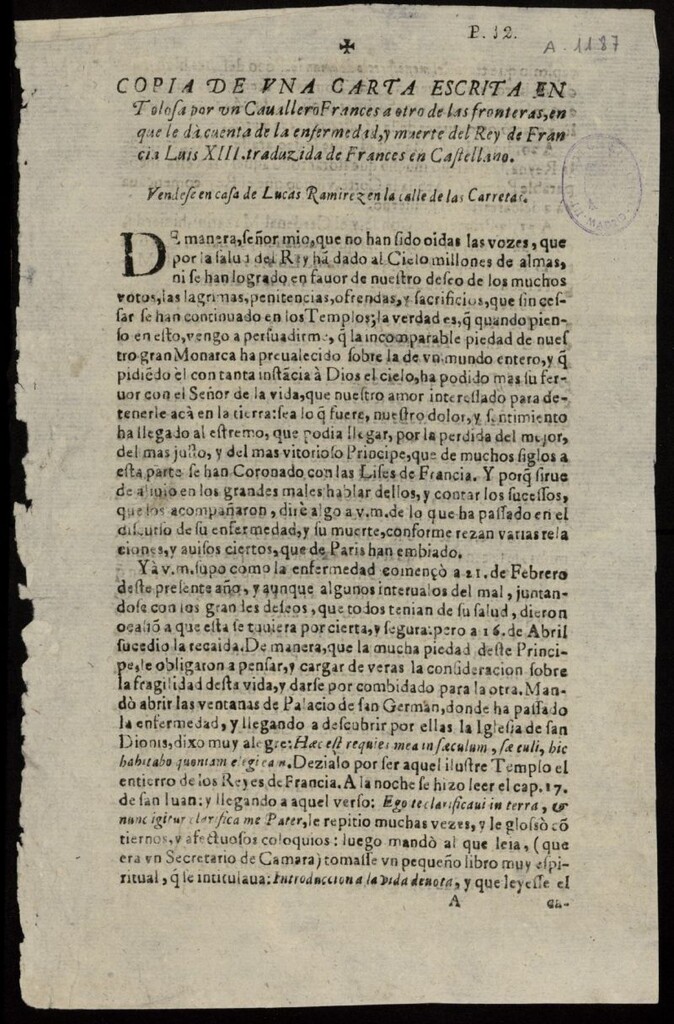 P. 12.
A-1187
✠
COPIA DE VNA CARTA ESCRITA EN
Tolosa por vn Cauallero Frances a otro de las fronteras, en
que le dà cuenta de la enfermedad, y muerte del Rey de Fran
cia Luis XIII. traduzida de Frances en Castellano.
Vendese en casa de Lucas Ramirez en la calle de las Carretas.
DE manera, señor mio, que no han sido oidas las vozes, que
por la salud del Rey hā dado al Cielo millones de almas,
ni se han logrado en fauor de nuestro deseo de los muchos
votos, las lagrimas, penitencias, ofrendas, y sacrificios, que sin ces-
sar se han continuado en los Templos; la verdad es, q̄ quando pien-
so en esto, vengo a persuadirme, q̄ la incomparable piedad de nues
tro gran Monarca ha preualecido sobre la de vn mundo entero, y q̄
pidiēdo èl con tanta instācia à Dios el cielo, ha podido mas su fer-
uor con el Señor de la vida, que nuestro amor interessado para de-
tenerle acà en la tierra: sea lo q̄ fuere, nuestro dolor, y sentimiento
ha llegado al estremo, que podia llegar, por la perdida del mejor,
del mas justo, y del mas vitorioso Principe, que de muchos siglos a
esta parte se han Coronado con las Lises de Francia. Y porq̄ sirue
de aliuio en los grandes males hablar dellos, y contar los sucessos,
que los acompañaron, dirè algo a v.m. de lo que ha passado en el
discurso de su enfermedad, y su muerte, conforme rezan varias rela
ciones, y auisos ciertos, que de Paris han embiado.
Yà v.m. supo como la enfermedad començò a 21. de Febrero
deste presente año, y aunque algunos interualos del mal, juntan-
dose con los grandes deseos, que todos tenian de su salud, dieron
ocasiō a que esta se tuuiera por cierta, y segura: pero a 16. de Abril
sucedio la recaida. De manera, que la mucha piedad deste Princi-
pe, le obligaron a pensar, y cargar de veras la consideracion sobre
la fragilidad desta vida, y darse por combidado para la otra. Man-
dò abrir las ventanas de Palacio de san Germān, donde ha passado
la enfermedad, y llegando a descubrir por ellas la Iglesia de san
Dionis, dixo muy alegre: Hæc est requies mea in sæculum, sæculi, hic
habitabo quoniam elegi eam. Dezialo por ser aquel ilustre Templo el
entierro de los Reyes de Francia. A la noche se hizo leer el cap. 17.
de san Iuan: y llegando a aquel verso: Ego te clarificaui in terra, &
nunc igitur clarifica me Pater, le repitio muchas vezes, y le glossò cō
tiernos, y afectuosos coloquios: luego mandò al que leia, (que
era vn Secretario de Camara) tomasse vn pequeño libro muy espi-
ritual, q̄ se intitulaua: Introduccion a la vida deuota, y que leyesse el
A ca-